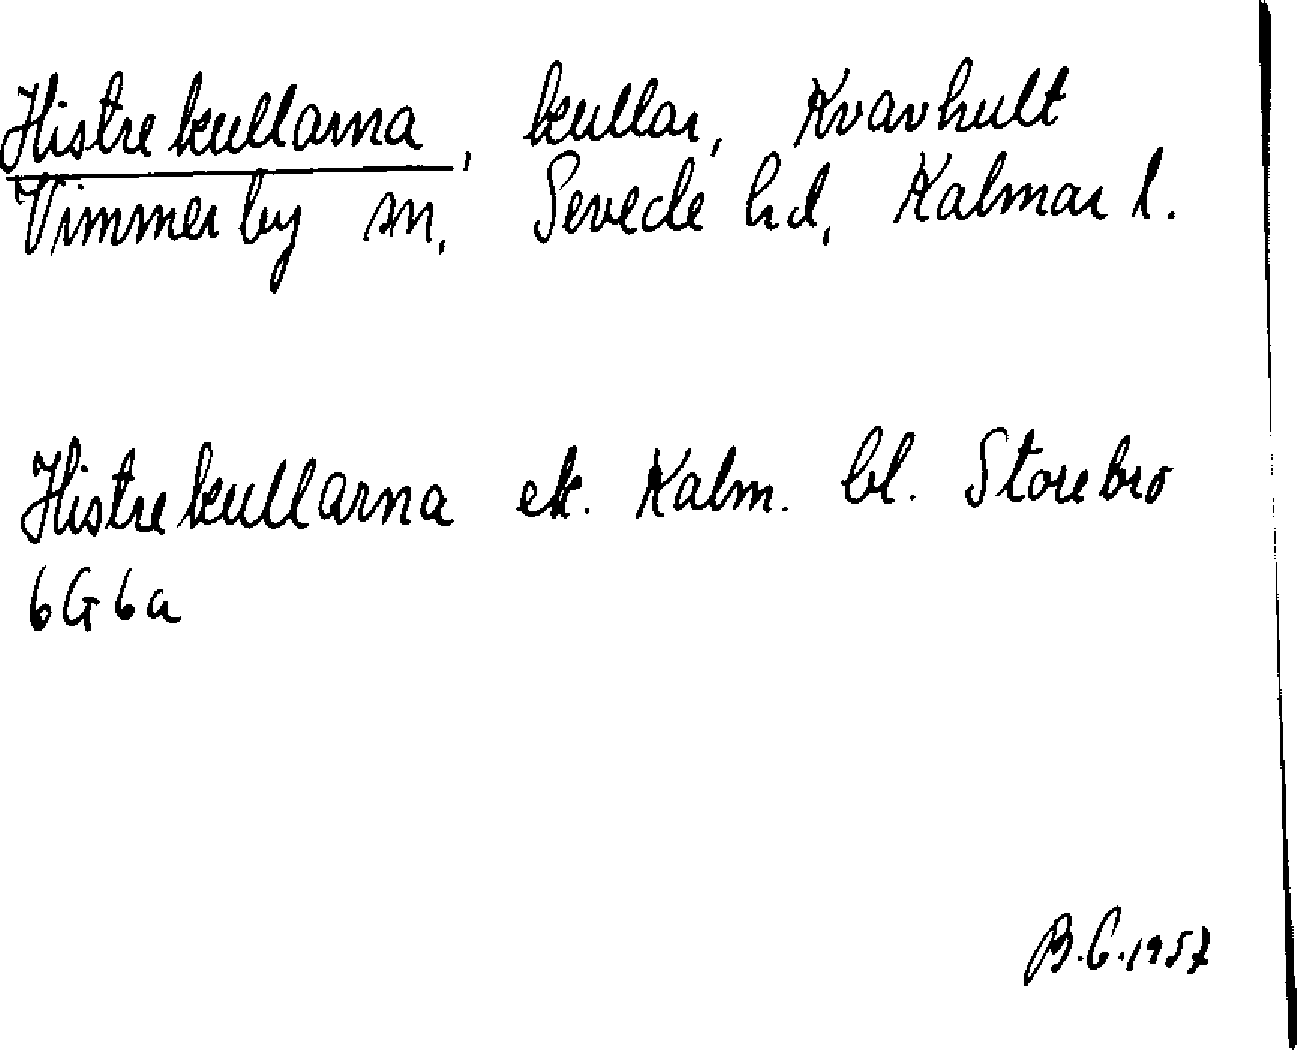 Histrekullarna, kullar, Kvarnhult
Vimmerby sn, Sevede hd, Kalmar l.
Histrekullarna ek. Kalm. bl. Storebro
6G6a
B.G. 1957